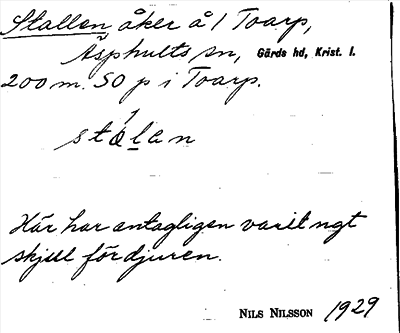 Stallen, åker å 1 Toarp,
Äsphults sn, Gärds hd, Krist. l.
200 m. SO p i Toarp.
stálan
Här har antagligen varit ngt
skjul för djuren.
NILS NILSSON 1929